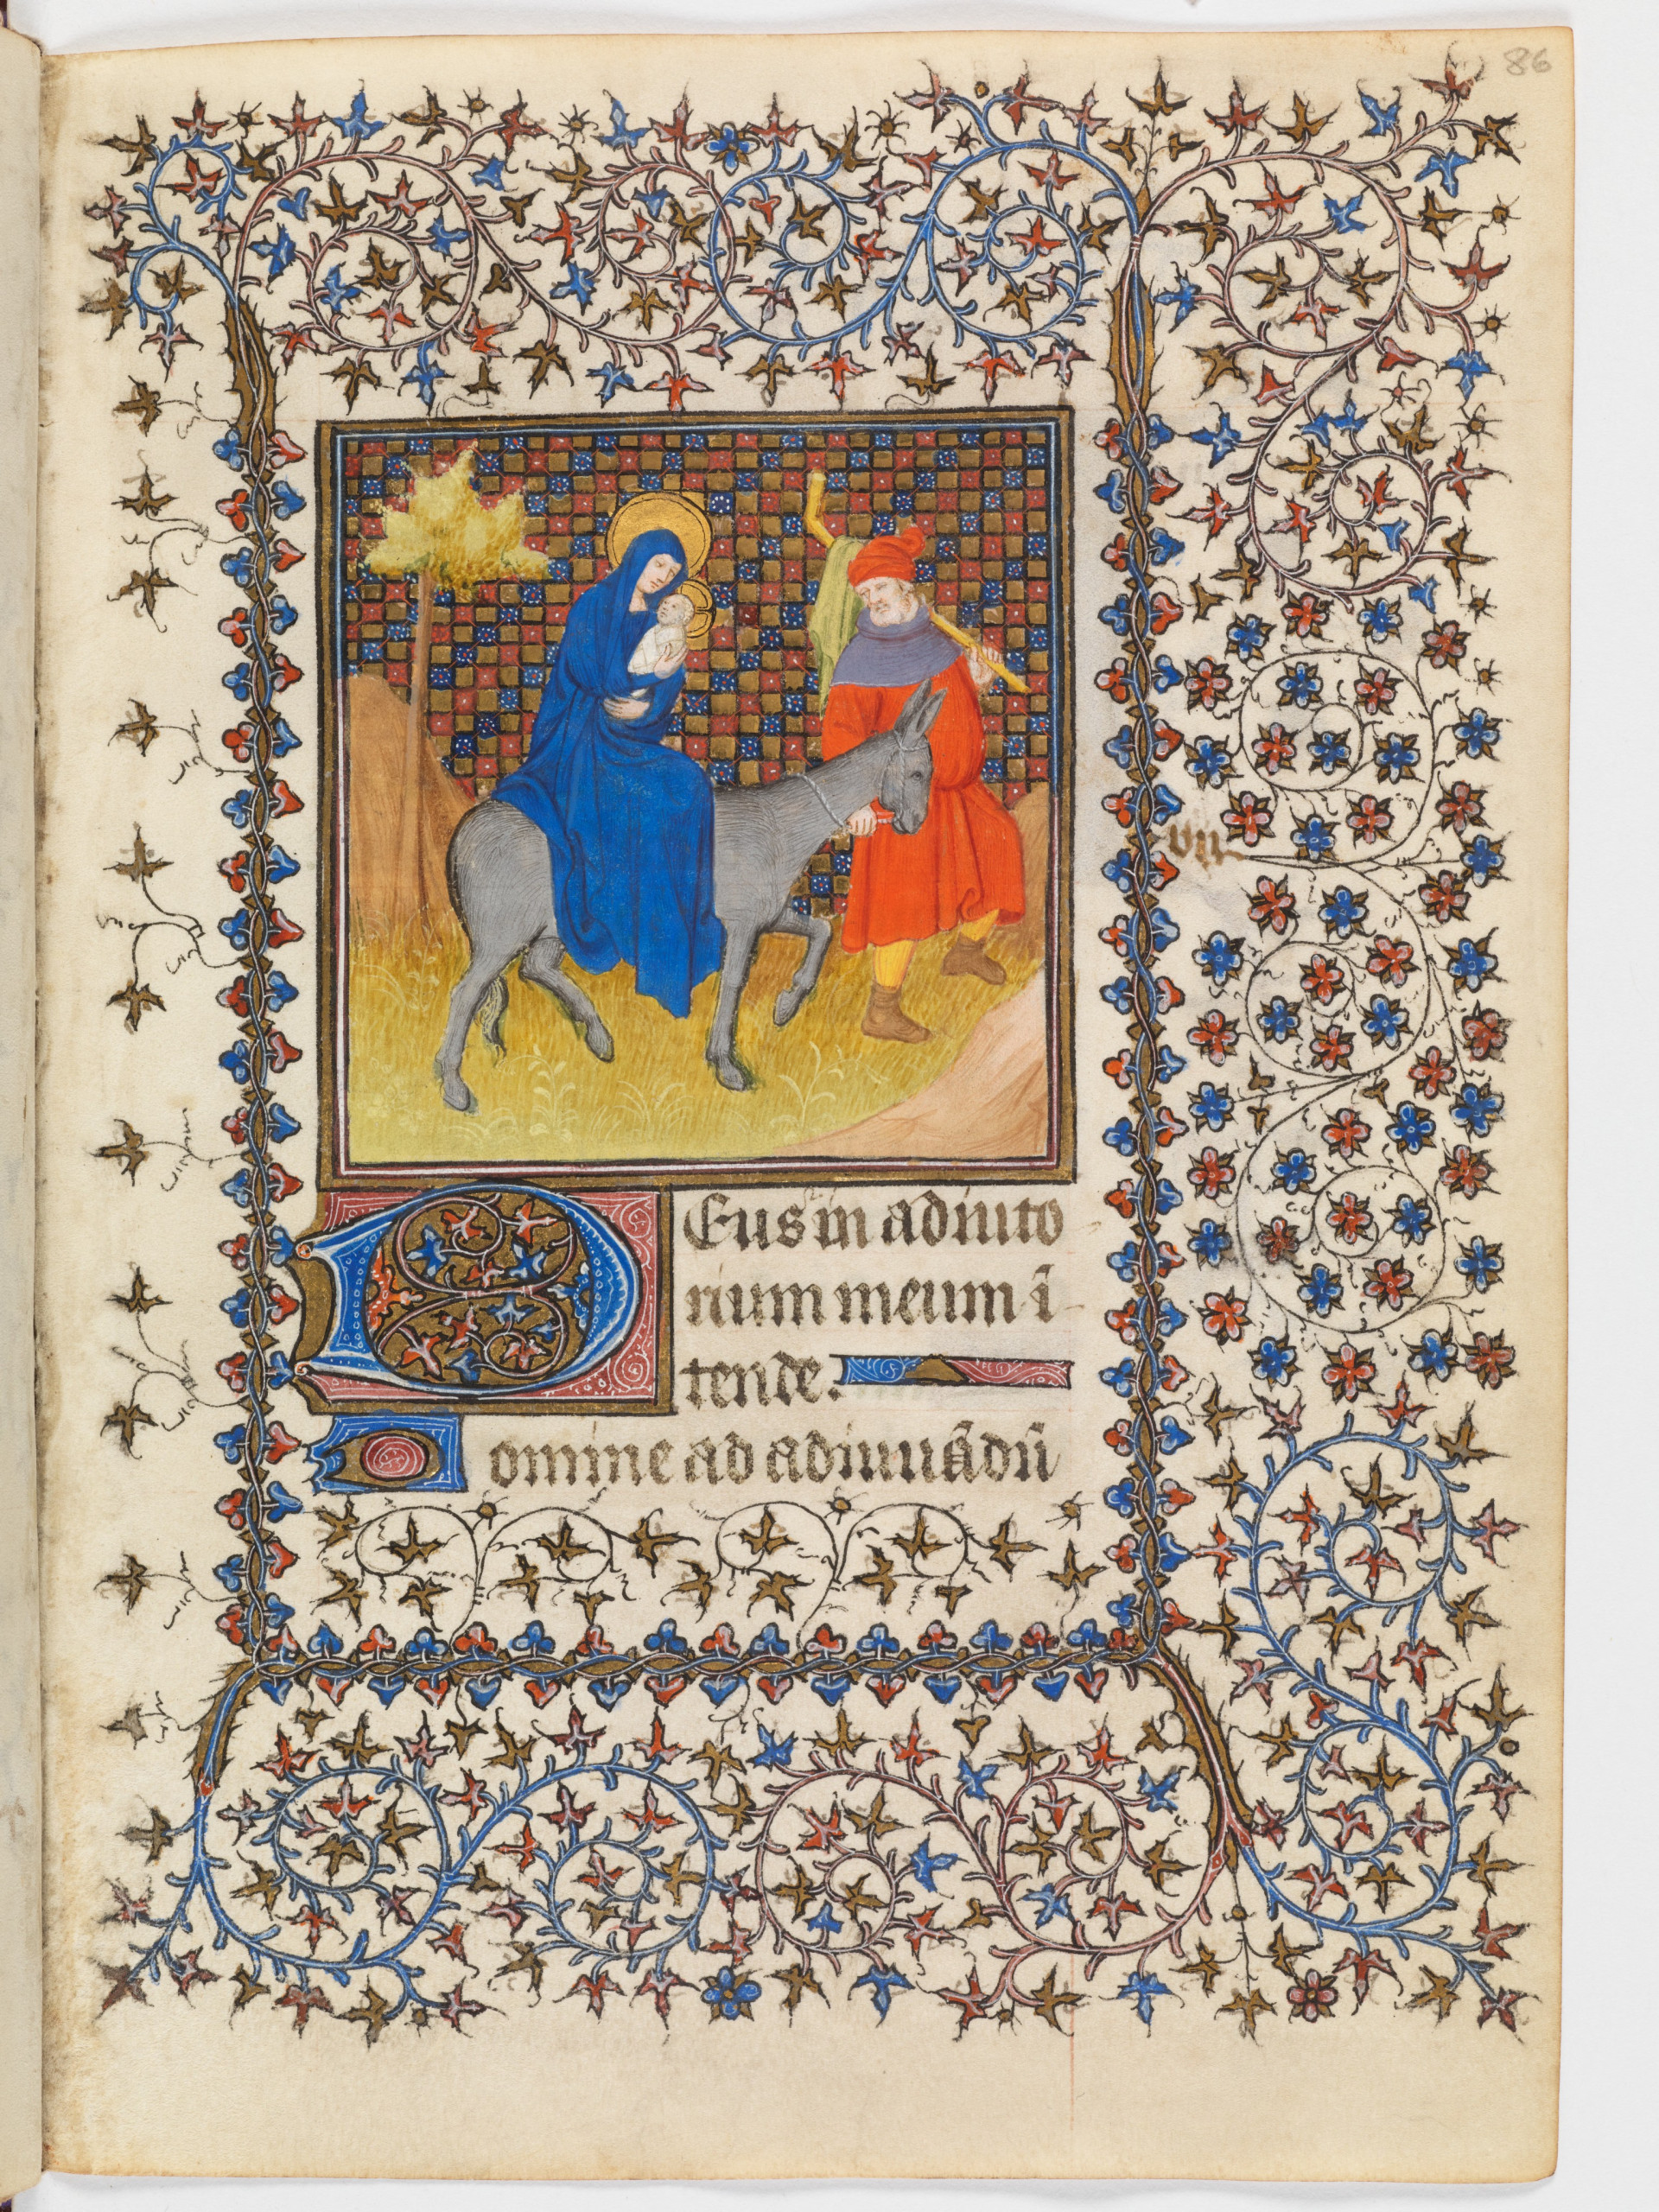 86
DEus in adiuto
rium meum ī
tende.
Domine ad adiuuādū